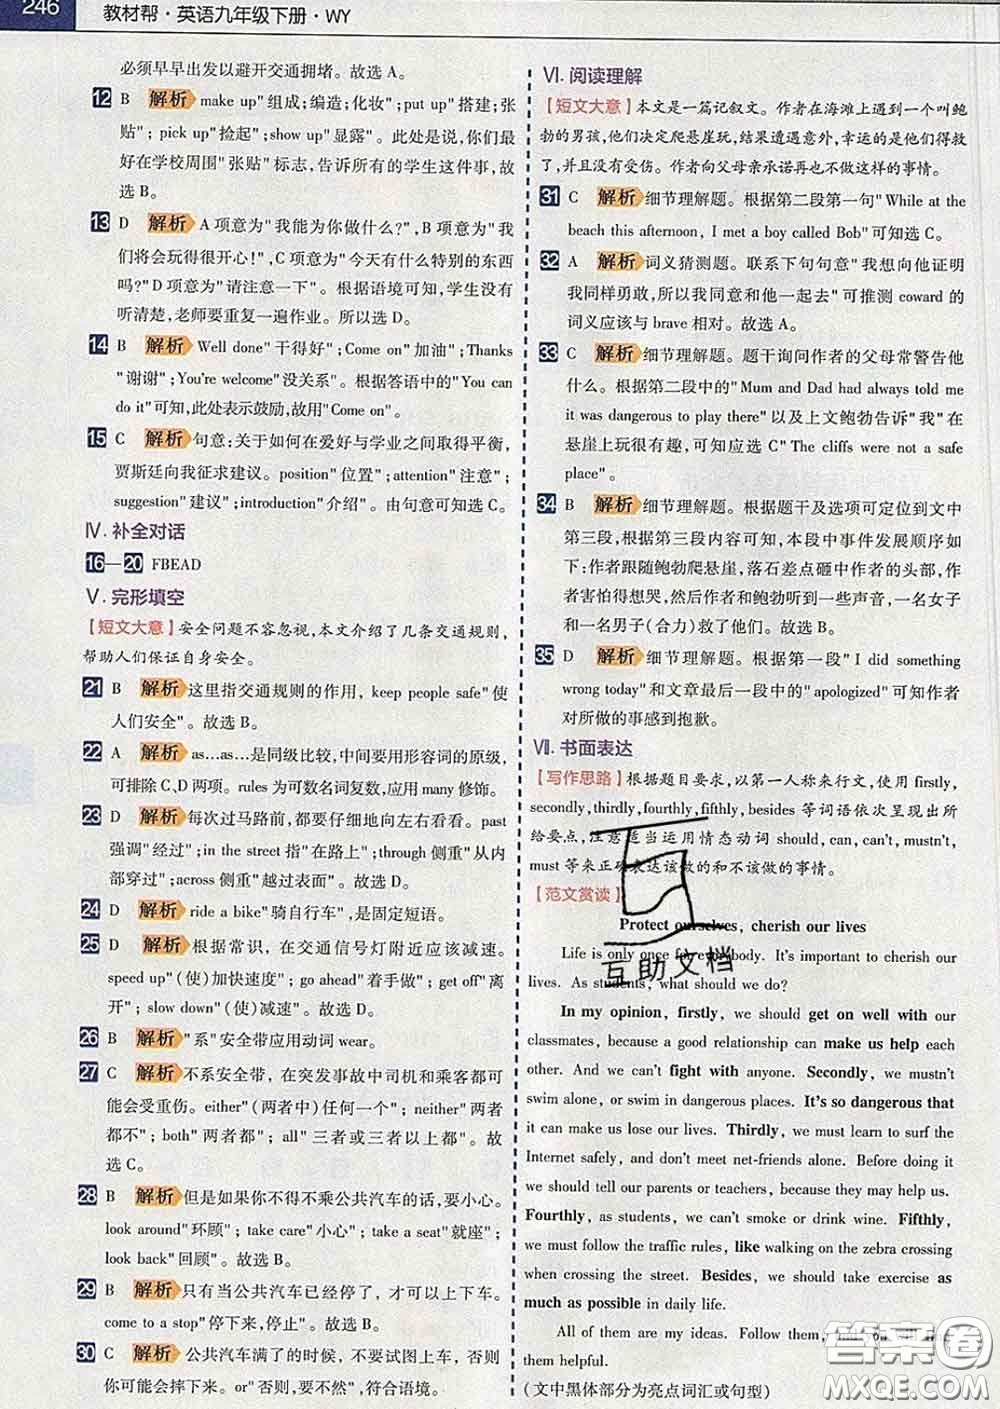 246 教材帮·英语九年级下册·WY
必须早早出发以避开交通拥堵。故选 A。
12 B 解析 make up"组成;编造;化妆";put up"搭建;张
贴"; pick up"捡起";show up"显露"。此处是说,你们最
好在学校周围"张贴"标志,告诉所有的学生这件事,故
选 B。
13 D 解析 A 项意为"我能为你做什么?",B 项意为"我
们将会玩得很开心!",C 项意为"今天有什么特别的东西
吗?"D 项意为"请注意一下"。根据语境可知,学生没有
听清楚,老师要重复一遍作业。所以选 D。
14 B 解析 Well done"干得好";Come on"加油";Thanks
"谢谢";You're welcome"没关系"。根据答语中的"You can
do it"可知,此处表示鼓励,故用"Come on"。
15 C 解析 句意:关于如何在爱好与学业之间取得平衡,
贾斯廷向我征求建议。position"位置";attention"注意";
suggestion"建议";introduction"介绍"。由句意可知选 C。
Ⅳ. 补全对话
16—20 FBEAD
Ⅴ. 完形填空
【短文大意】安全问题不容忽视,本文介绍了几条交通规则,
帮助人们保证自身安全。
21 B 解析 这里指交通规则的作用, keep people safe"使
人们安全"。故选 B。
22 A 解析 as…as…是同级比较,中间要用形容词的原级,
可排除C、D 两项。rules 为可数名词复数,应用 many 修饰。
23 D 解析 每次过马路前,都要仔细地向左右看看。past
强调"经过";in the street 指"在路上";through 侧重"从内
部穿过";across 侧重"越过表面"。故选 D。
24 D 解析 ride a bike"骑自行车",是固定短语。
25 D 解析 根据常识,在交通信号灯附近应该减速。
speed up"(使)加快速度"; go ahead"着手做"; get off"离
开"; slow down"(使)减速"。故选 D。
26 B 解析 "系"安全带应用动词 wear。
27 C 解析 不系安全带,在突发事故中司机和乘客都可
能会受重伤。either"(两者中)任何一个"; neither"两者
都不"; both"两者都"; all"三者或三者以上都"。故
选 C。
28 B 解析 但是如果你不得不乘公共汽车的话,要小心。
look around"环顾"; take care"小心"; take a seat"就座";
look back"回顾"。故选 B。
29 B 解析 只有当公共汽车已经停了,才可以上下车。
come to a stop"停下来,停止"。故选 B。
30 C 解析 公共汽车满了的时候,不要试图上车,否则你
可能会摔下来。or"否则,要不然",符合语境。
Ⅵ. 阅读理解
【短文大意】本文是一篇记叙文。作者在海滩上遇到一个叫鲍
勃的男孩,他们决定爬悬崖玩,结果遭遇意外,幸运的是他们得救
了,并且没有受伤。作者向父母亲承诺再也不做这样的事情。
31 C 解析 细节理解题。根据第二段第一句"While at the
beach this afternoon, I met a boy called Bob"可知选 C。
32 A 解析 词义猜测题。联系下句句意"我想向他证明
我同样勇敢,所以我同意和他一起去"可推测 coward 的
词义应该与 brave 相对。故选 A。
33 C 解析 细节理解题。题干询问作者的父母常警告他
什么。根据第二段中的"Mum and Dad had always told me
it was dangerous to play there"以及上文鲍勃告诉"我"在
悬崖上玩很有趣,可知应选 C"The cliffs were not a safe
place"。
34 B 解析 细节理解题。根据题干及选项可定位到文中
第三段,根据第三段内容可知,本段中事件发展顺序如
下:作者跟随鲍勃爬悬崖,落石差点砸中作者的头部,作
者害怕得想哭,然后作者和鲍勃听到一些声音,一名女子
和一名男子(合力)救了他们。故选 B。
35 D 解析 细节理解题。根据第一段"I did something
wrong today"和文章最后一段中的"apologized"可知作者
对所做的事感到抱歉。
Ⅶ. 书面表达
【写作思路】根据题目要求,以第一人称来行文,使用 firstly,
secondly,thirdly,fourthly,fifthly,besides 等词语依次呈现出所
给要点,注意适当运用情态动词 should, can, can't, mustn't,
must 等来正确表达该做的和不该做的事情。
【范文赏读】
Protect ourselves, cherish our lives
Life is only once for everybody. It's important to cherish our
lives. As students, what should we do?
In my opinion, firstly, we should get on well with our
classmates, because a good relationship can make us help each
other. And we can't fight with anyone. Secondly, we mustn't
swim alone, or swim in dangerous places. It's so dangerous that
it can make us lose our lives. Thirdly, we must learn to surf the
Internet safely, and don't meet net-friends alone. Before doing it
we should tell our parents or teachers, because they may help us.
Fourthly, as students, we can't smoke or drink wine. Fifthly,
we must follow the traffic rules, like walking on the zebra crossing
when crossing the street. Besides, we should take exercise as
much as possible in daily life.
All of them are my ideas. Follow them, and you will
them helpful.
(文中黑体部分为亮点词汇或句型)
互助文档
答案圈
MXQE.COM